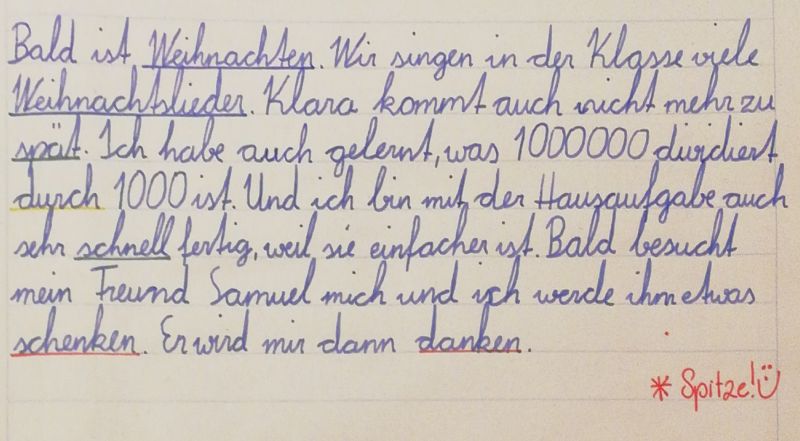 Bald ist Weihnachten. Wir singen in der Klasse viele
Weihnachtslieder. Klara kommt auch nicht mehr zu
spät. Ich habe auch gelernt, was 1000000 dividiert
durch 1000 ist. Und ich bin mit der Hausaufgabe auch
sehr schnell fertig, weil sie einfacher ist. Bald besucht
mein Freund Samuel mich und ich werde ihm etwas
schenken. Er wird mir dann danken.
* Spitze! Ü